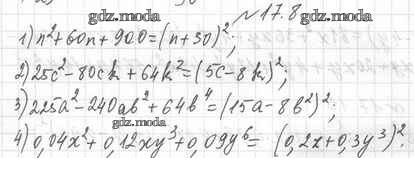 gdz.moda
gdz.moda
№17.8
1) n²+60n+900=(n+30)²;
2) 25c²-80ck+64k²=(5c-8k)²;
3) 225a²-240ab²+64b⁴=(15a-8b²)²;
gdz.moda
4) 0,04x²+0,12xy³+0,09y⁶=(0,2x+0,3y³)².